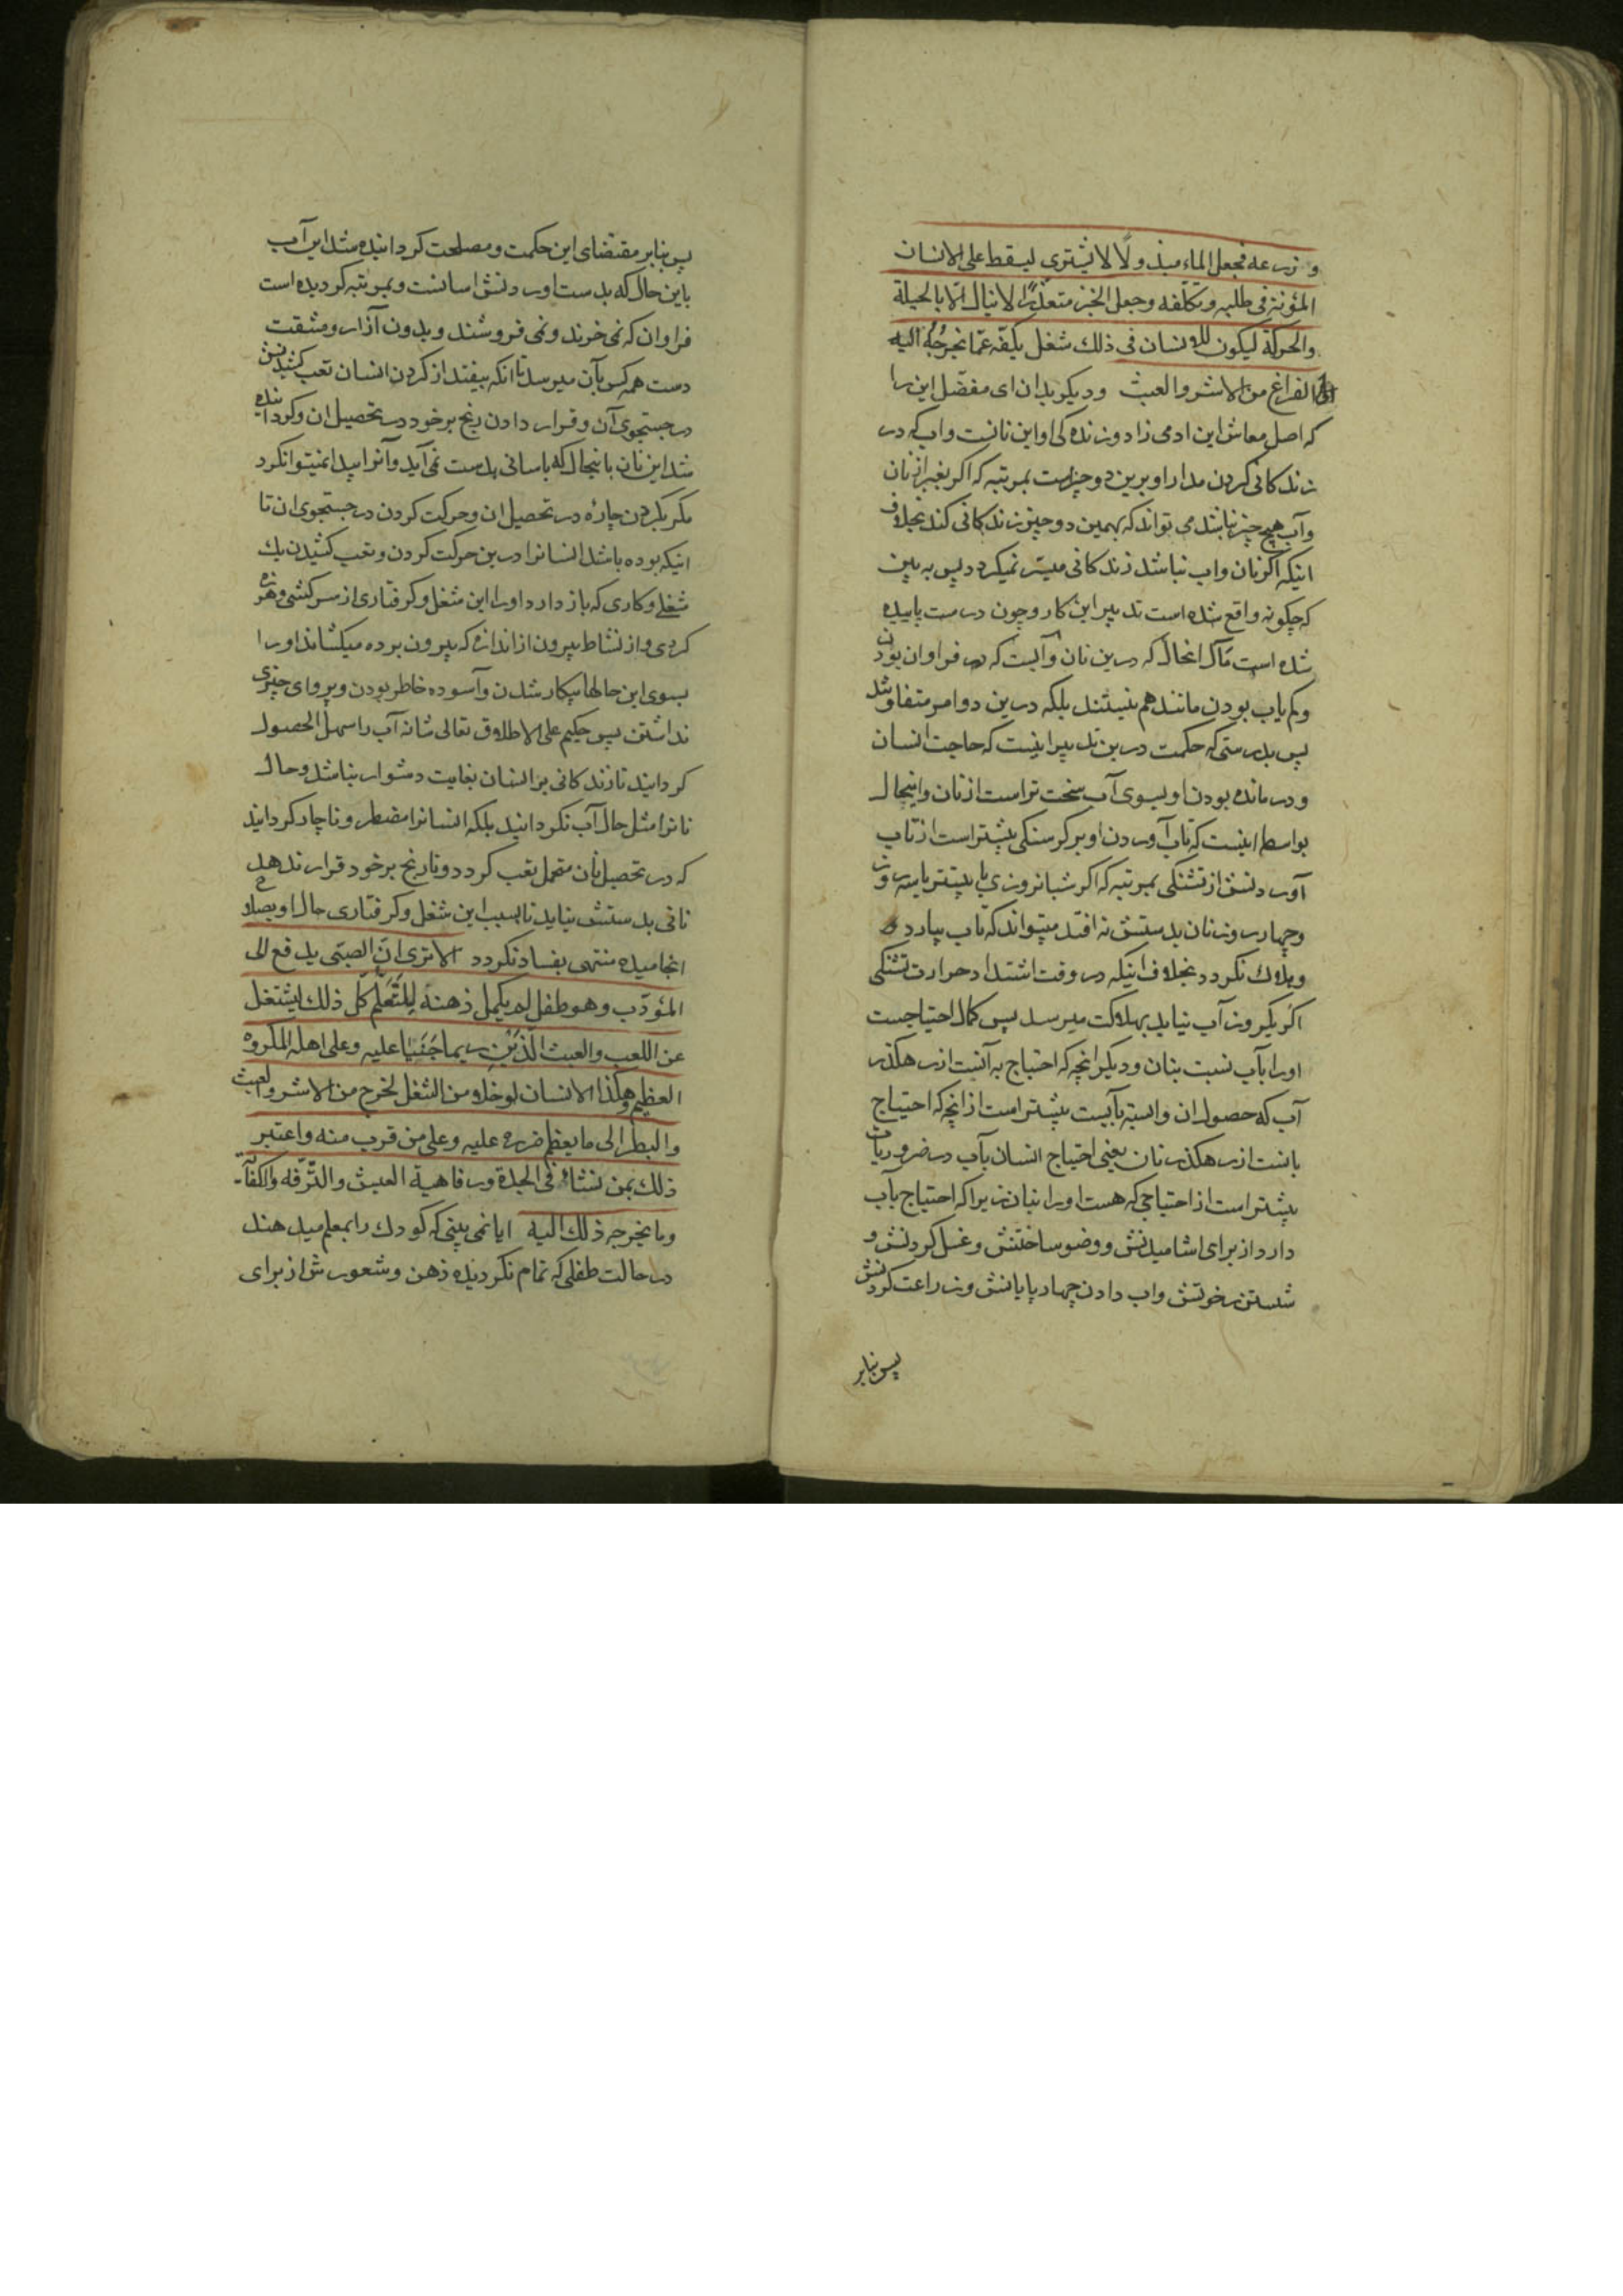 و زرعه فجعل الماء مبذولًا لا یشتری لیسقط علی الانسان
المؤنة فی طلبه و تکلّفه وجعل الخبز متعذّرًا لاینال الّا بالحیلة
والحرکة لیکون للانسان فی ذلک شغل یکفّه عمّا یخرجه الیه
الفراغ من الاشر والعبث ودیگر بدان ای مفضّل این را
که اصل معاش این ادمی زاد و زندگی او این نانست واب که در
زندکانی کردن مدار او برین دو چیزاست بمرتبه که اکر بغیر از نان
وآب هیچ چیز نباشد می تواند که بهمین دوچیز زندکانی کند بخلاف
اینکه اکر نان واب نباشد زندکانی میسّر نمیکردد پس به بین
که چکونه واقع شده است تدبیر این کار وچون درست پاییده
شده است مآل انحال که درین نان وآبست که در فراوان بودن
وکم یاب بودن مانند هم نیستند بلکه درین دو امر متفاوتند
پس بدرستی که حکمت درین تدبیر اینست که حاجت انسان
و درمانده بودن او بسوی آب سخت تر است از نان واینحال
بواسطه اینست که تاب آوردن او بر کرسنکی بیشتر است از تاب
آوردنش از تشنکی بمرتبه که اکر شبانروزی یا بیشتر یا سه روز
وچهار روز نان بدستش نه افتد میتواند که تاب بیارد و
وهلاک نکردد بخلاف اینکه در وقت اشتداد حرارت تشنکی
اکر یکروز آب نیابد بهلاکت میرسد پس کمال احتیاجست
اورا بآب نسبت بنان ودیکر انچه که احتیاج به آنست از رهکذر
آب که حصول ان وابسته بآبست بیشتر است از انچه که احتیاج
بانست از رهکذر نان یعنی احتیاج انسان بآب در ضروریات
بیشتر است از احتیاجی که هست اورا بنان زیرا که احتیاج بآب
دارد از برای اشامیدنش ووضو ساختنش وغسل کردنش و
شستن رخوتش واب دادن چهارپایانش وزراعت کردنش
پس بنابر
پس بنابر مقتضای این حکمت ومصلحت کردانیده شد این آب
باین حال که بدست اوردنش اسانست وبمرتبه کردیده است
فراوان که نمی خرند ونمی فروشند وبدون آزار ومشقت
دست همه کس بآن میرسد تا انکه بیفتد از کردن انسان تعب کشیدنش
در جستجوی آن وقرار دادن رنج برخود در تحصیل ان وکردانیده
شد این نان باینحال که باسانی بدست نمی آید وآنرا پیدا نمیتوانکرد
مکر بکردن چاره در تحصیل ان وحرکت کردن در جستجوی ان تا
اینکه بوده باشد انسانرا درین حرکت کردن وتعب کشیدن یک
شغلی وکاری که باز دارد اورا این شغل وکرفتاری از سرکشی وهرزه
کردی واز نشاط بیرون از اندازه که بیرون برده میکشاند اورا
بسوی این حالها بیکار شدن وآسوده خاطر بودن وپروای چیزی
نداشتن پس حکیم علی الاطلاق تعالی شانه آب را سهل الحصول
کردانید تا زندکانی بر انسان بغایت دشوار نباشد وحال
نانرا مثل حال آب نکردانید بلکه انسانرا مضطر وناچار کردانید
که در تحصیل نان متحمل تعب کردد وتا رنج برخود قرار ندهد
نانی بدستش نیاید تا بسبب این شغل وکرفتاری حال او بصلاح
انجامیده منتهی بفساد نکردد الا تری ان الصبی یدفع الی
المؤدّب وهو طفل لم یکمل ذهنه للتّعلّم کل ذلک لیشتغل
عن اللعب والعبث الّذین ربما جنیا علیه وعلی اهله المکروه
العظیم وهکذا الانسان لو خلا من الشغل لخرج من الاشر والعبث
والبطر الی ما یعظم ضرره علیه وعلی من قرب منه واعتبر
ذلک بمن نشأ فی الجدة ورفاهیة العیش والتّرفّه والکفایة
وما یخرجه ذلک الیه ایا نمی بینی که کودک را بمعلم میدهند
در حالت طفلی که تمام نکردیده ذهن وشعورش از برای